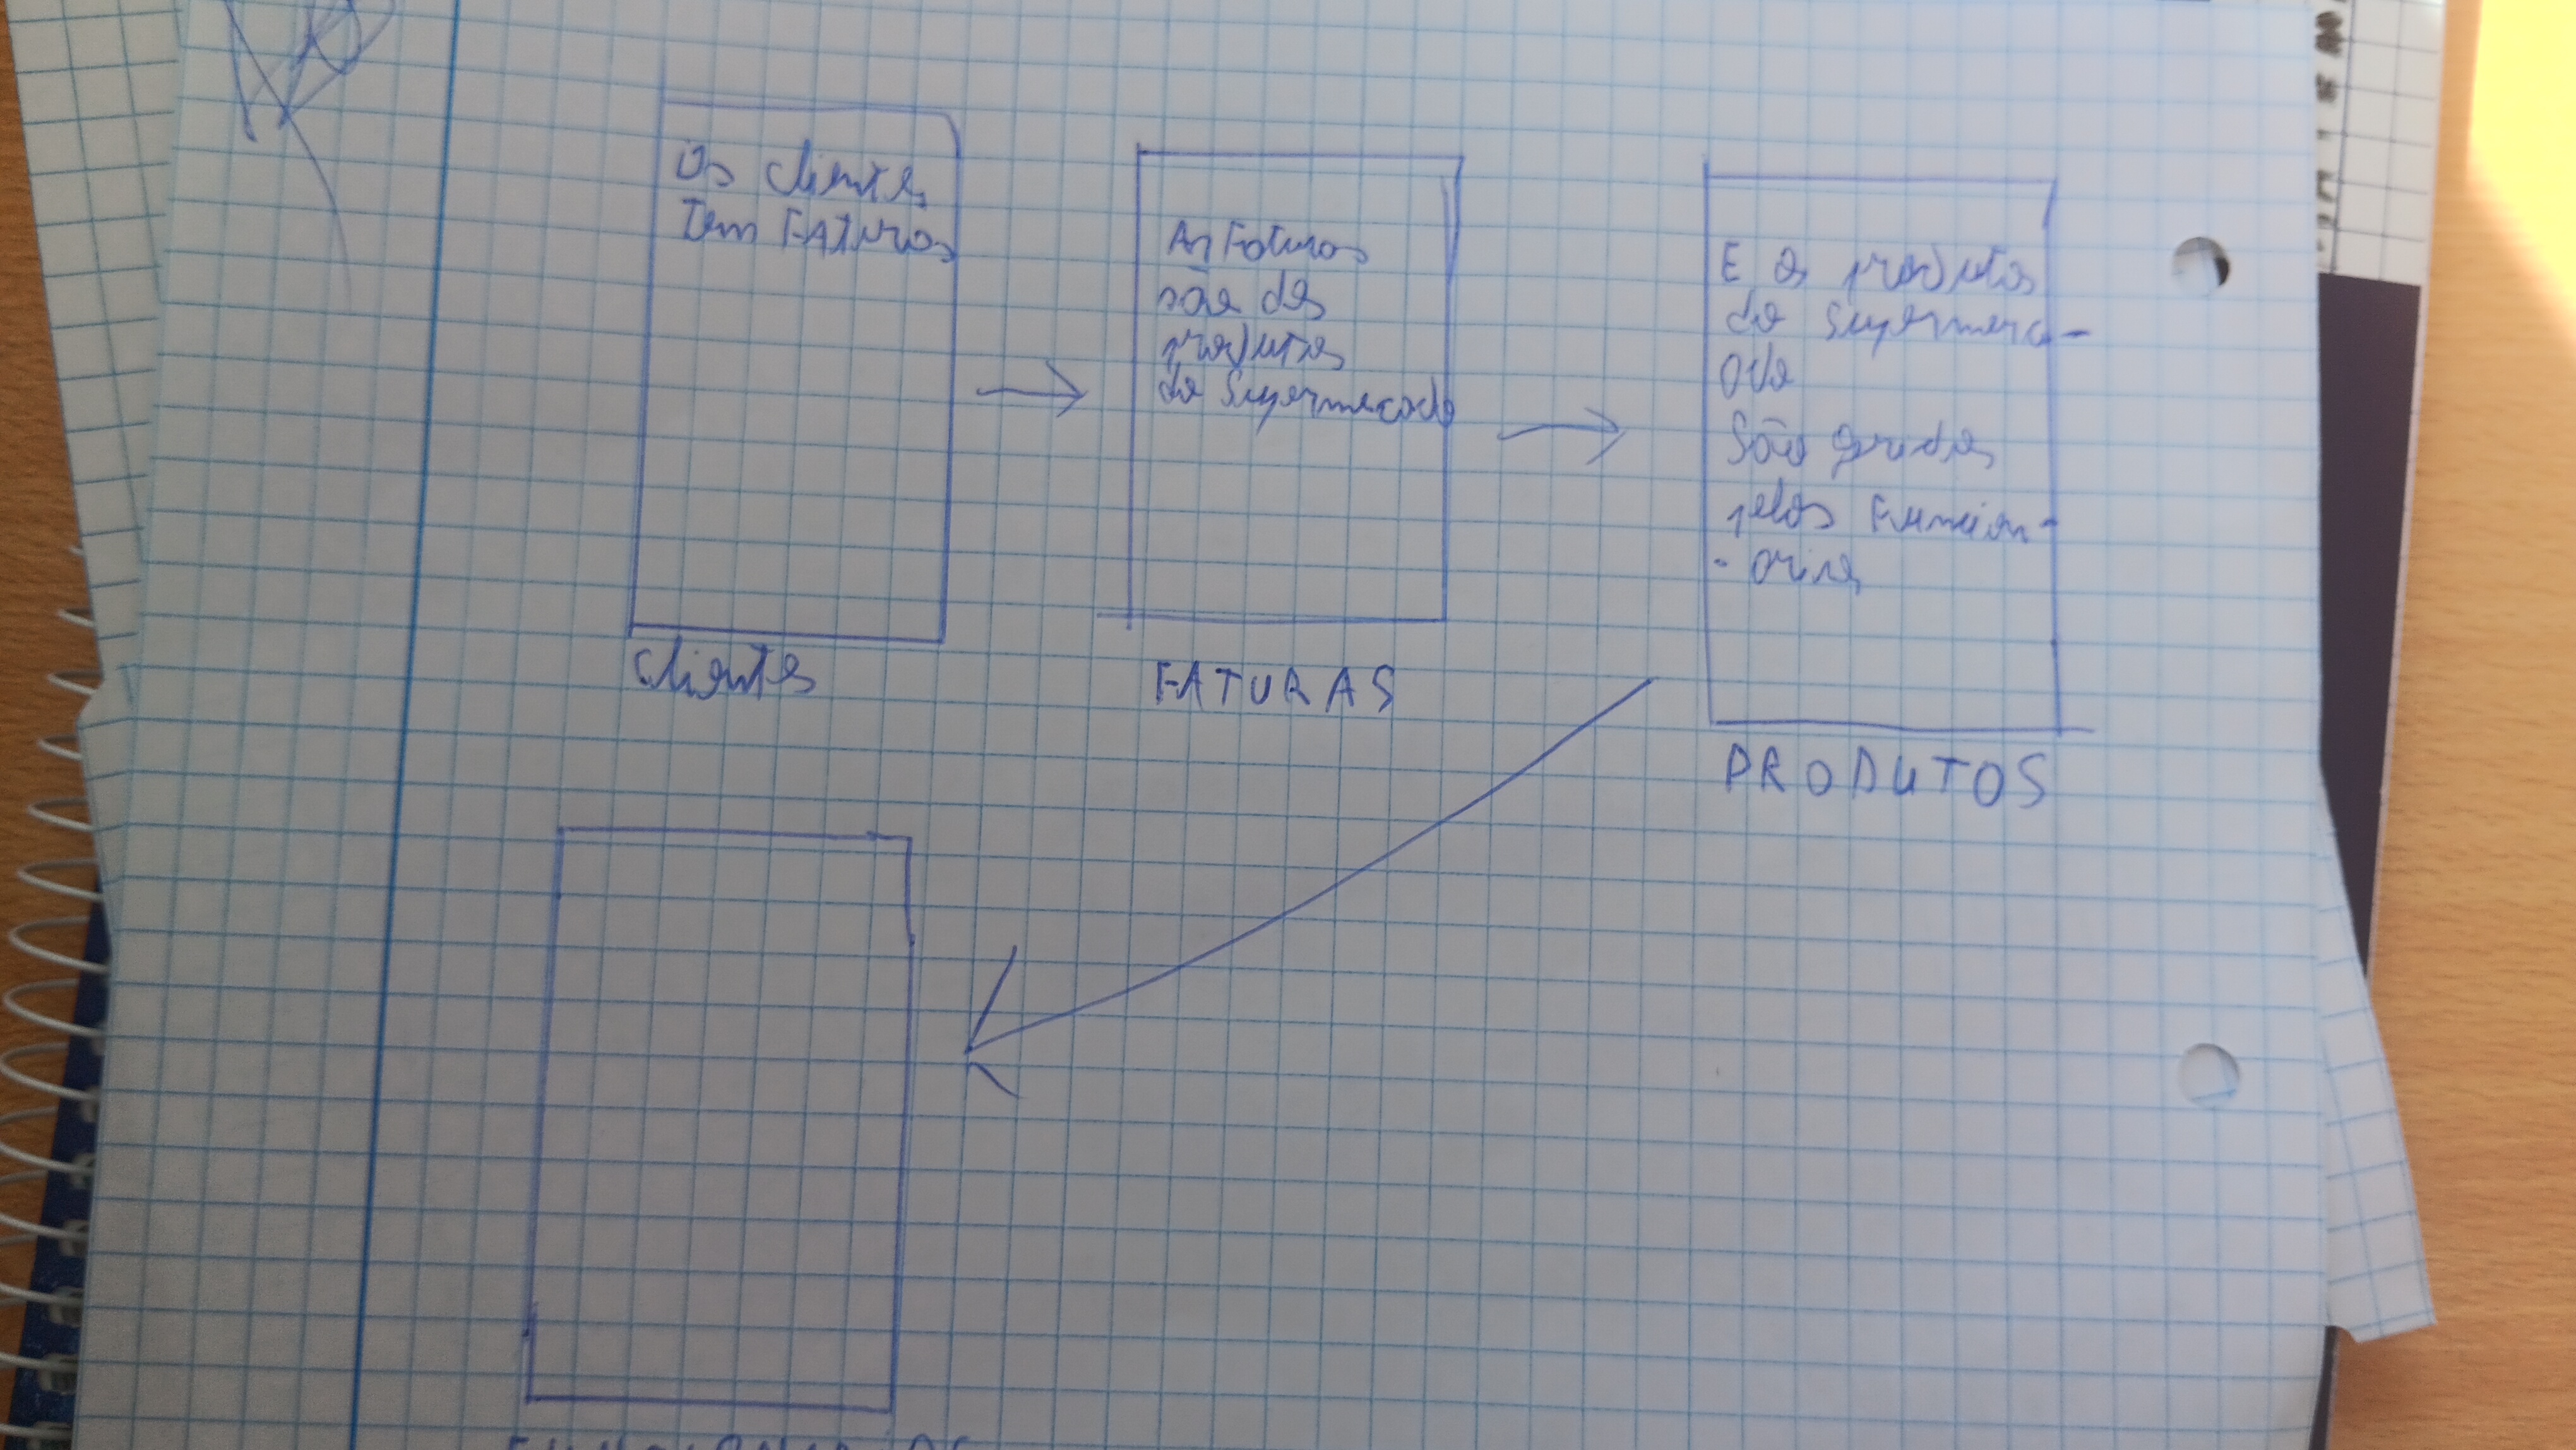 Os clientes
Tem FATuras
clientes
As Faturas
são dos
produtos
do Supermecado
FATURAS
E os produtos
do Supermerc-
ado
São geridos
pelos Funcion-
- arios
PRODUTOS